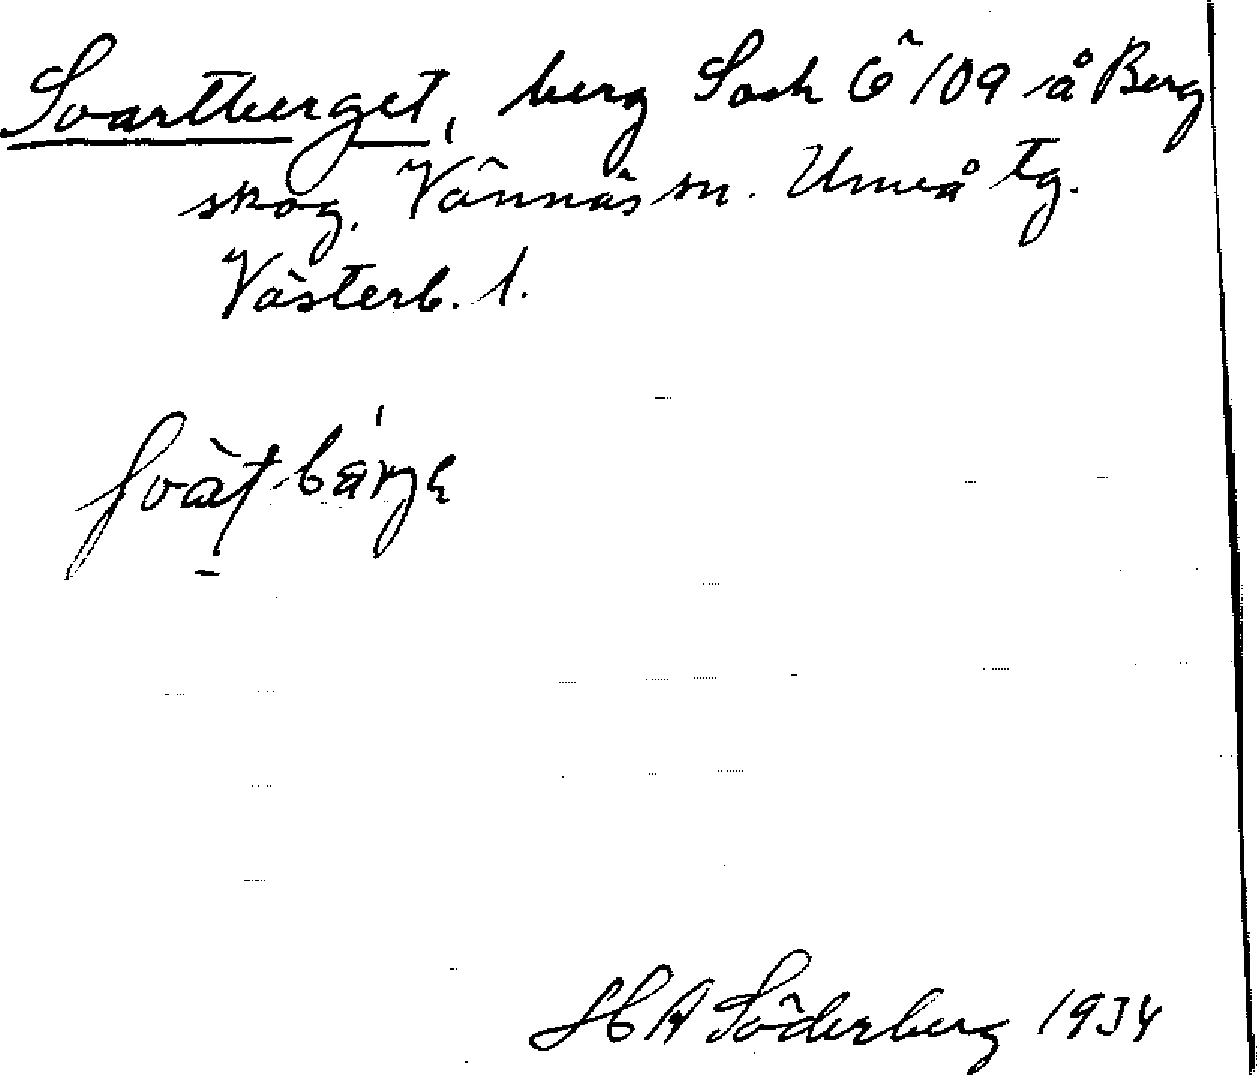 Svartberget, berg Sock Ö 109 å Berg
skog. Vännäs sn. Umeå tg.
Västerb. l.
H A Söderberg 1934